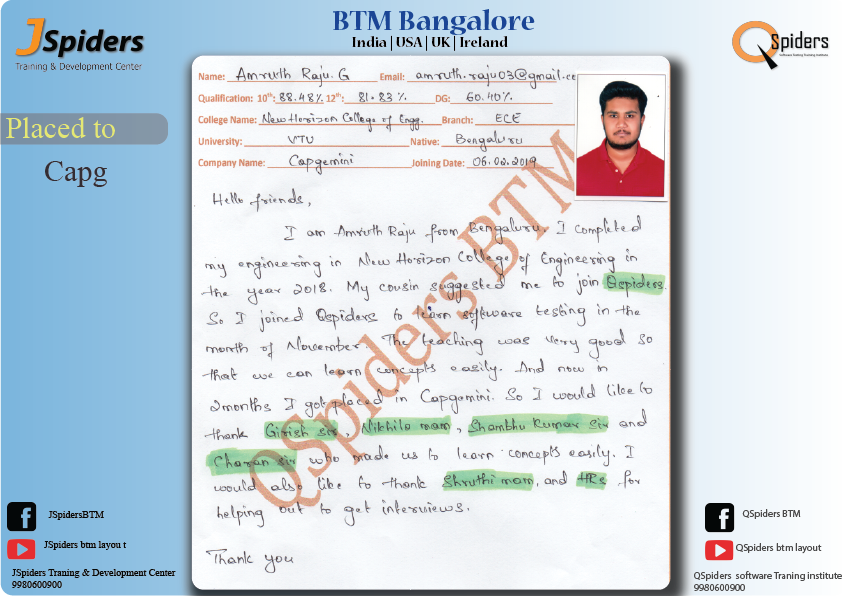 JSpiders
Training & Development Center
BTM Bangalore
India | USA | UK | Ireland
QSpiders
Software Testing Training Institute
Placed to
Capg
Name: Amruth Raju. G Email: amruth.raju03@gmail.co
Qualification: 10th: 88.48% 12th: 81.83 % DG: 60.40%
College Name: New Horizon College of Engg. Branch: ECE
University: VTU Native: Bengaluru
Company Name: Capgemini Joining Date: 06.02.2019
Hello friends,
I am Amruth Raju from Bengaluru. I completed
my engineering in New Horizon College of Engineering in
the year 2018. My cousin suggested me to join Qspiders.
So I joined Qspiders to learn software testing in the
month of November. The teaching was very good so
that we can learn concepts easily. And now in
2months I got placed in Capgemini. So I would like to
thank Girish sir, Nikhila mam, Shambhu Kumar sir and
Charan sir who made us to learn concepts easily. I
would also like to thank Shruthi mam, and HRs for
helping out to get interviews.
Thank you
QSpiders BTM
JSpidersBTM
JSpiders btm layou t
JSpiders Traning & Development Center
9980600900
QSpiders BTM
QSpiders btm layout
QSpiders software Traning institute
9980600900